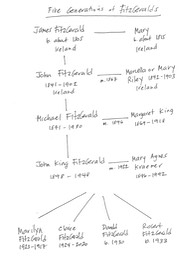 Five Generations of FitzGeralds
James FitzGerald
b. about 1815
Ireland
Mary
b. about 1815
Ireland
John FitzGerald
1841-1902
Ireland
m. 1867
Honella or Mary
Riley 1842-1903
Ireland
Michael FitzGerald
1891-1930
m. 1894
Margaret King
1869-1918
John King FitzGerald
1898 - 1948
m. 1922
Mary Agnes
Kraemer
1896-1992
Marilyn
FitzGerald
1923-1917
Claire
FitzGerald
1924-2020
FitzGerald
b. 1930
Robert
FitzGerald
b. 1933